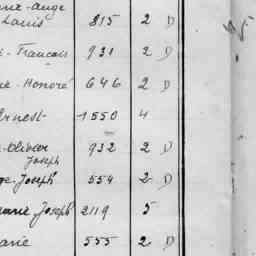 Ange
Louis 815 2 D
- François 931 2 D
- Honoré 646 2 D
Ernest 1550 4
- Olivier 932 2 D
Joseph
Joseph 554 2 D
Marie Joseph 2119 5
Marie 555 2 D